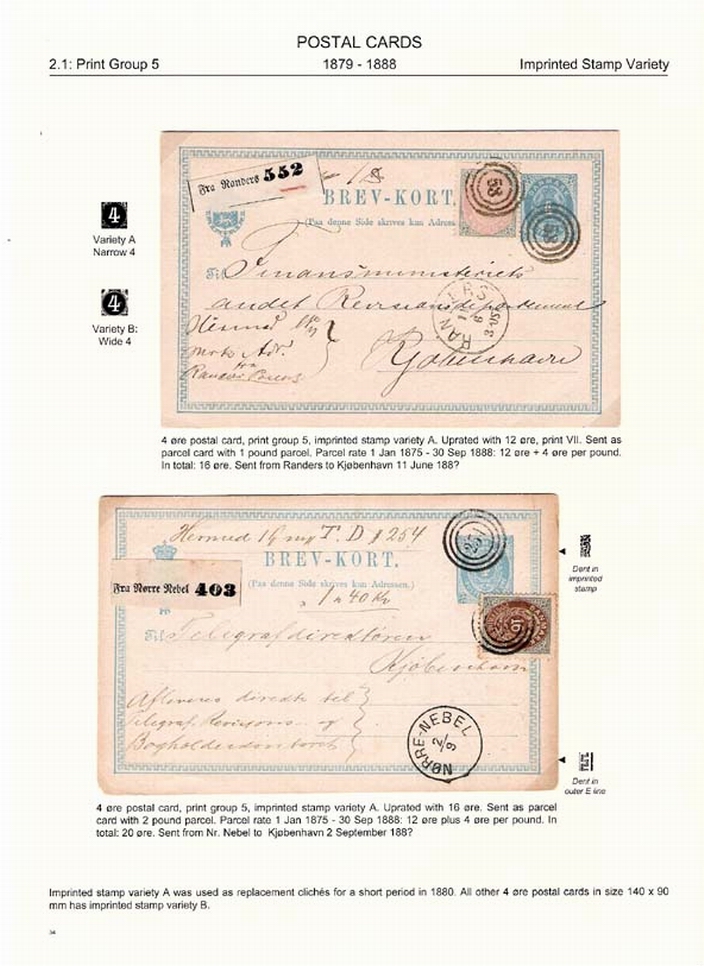 POSTAL CARDS
2.1: Print Group 5
1879 - 1888
Imprinted Stamp Variety
Fra Randers 552
BREV-KORT.
(Paa denne Side skrives kun Adress
53
Til Finansministeriets
andet Revisionsdepartement
Kjøbenhavn
RANDERS
4
Variety A
Narrow 4
4
Variety B:
Wide 4
4 øre postal card, print group 5, imprinted stamp variety A. Uprated with 12 øre, print VII. Sent as
parcel card with 1 pound parcel. Parcel rate 1 Jan 1875 - 30 Sep 1888: 12 øre + 4 øre per pound.
In total: 16 øre. Sent from Randers to Kjøbenhavn 11 June 188?
Hermed
T. D
254
BREV-KORT.
(Paa denne Side skrives kun Adressen.)
Fra Nørre Nebel 403
40 Kr
251
16
DANMARK
Til Telegrafdirektøren
Kjøbenhavn
Afleveres direkte til
Telegraf Revisions- og
NØRRE-NEBEL
2/9
Dent in
imprinted
stamp
Dent in
outer E line
4 øre postal card, print group 5, imprinted stamp variety A. Uprated with 16 øre. Sent as parcel
card with 2 pound parcel. Parcel rate 1 Jan 1875 - 30 Sep 1888: 12 øre plus 4 øre per pound. In
total: 20 øre. Sent from Nr. Nebel to Kjøbenhavn 2 September 188?
Imprinted stamp variety A was used as replacement clichés for a short period in 1880. All other 4 øre postal cards in size 140 x 90
mm has imprinted stamp variety B.
34